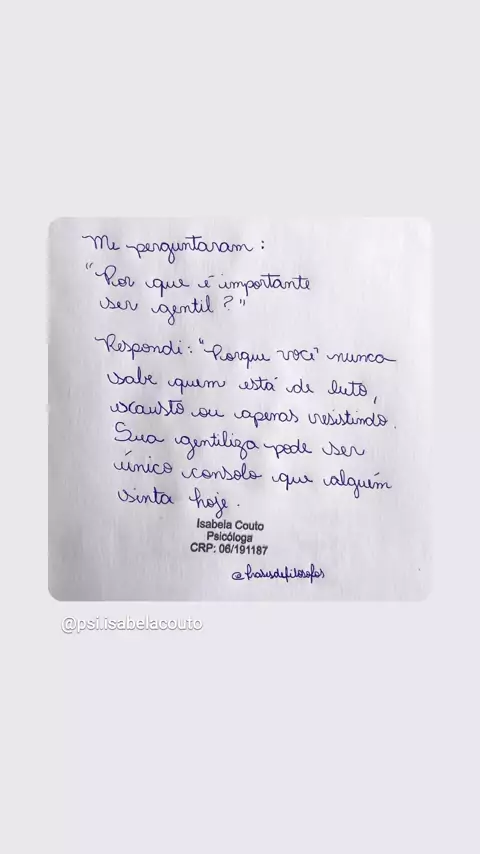 Me perguntaram:
"Por que é importante
ser gentil?"
Respondi: "Porque você nunca
sabe quem está de luto,
exausto ou apenas resistindo.
Sua gentiliza pode ser
único consolo que alguém
sinta hoje.
Isabela Couto
Psicóloga
CRP: 06/191187
@frasesdefilosofos
@psi.isabelacouto